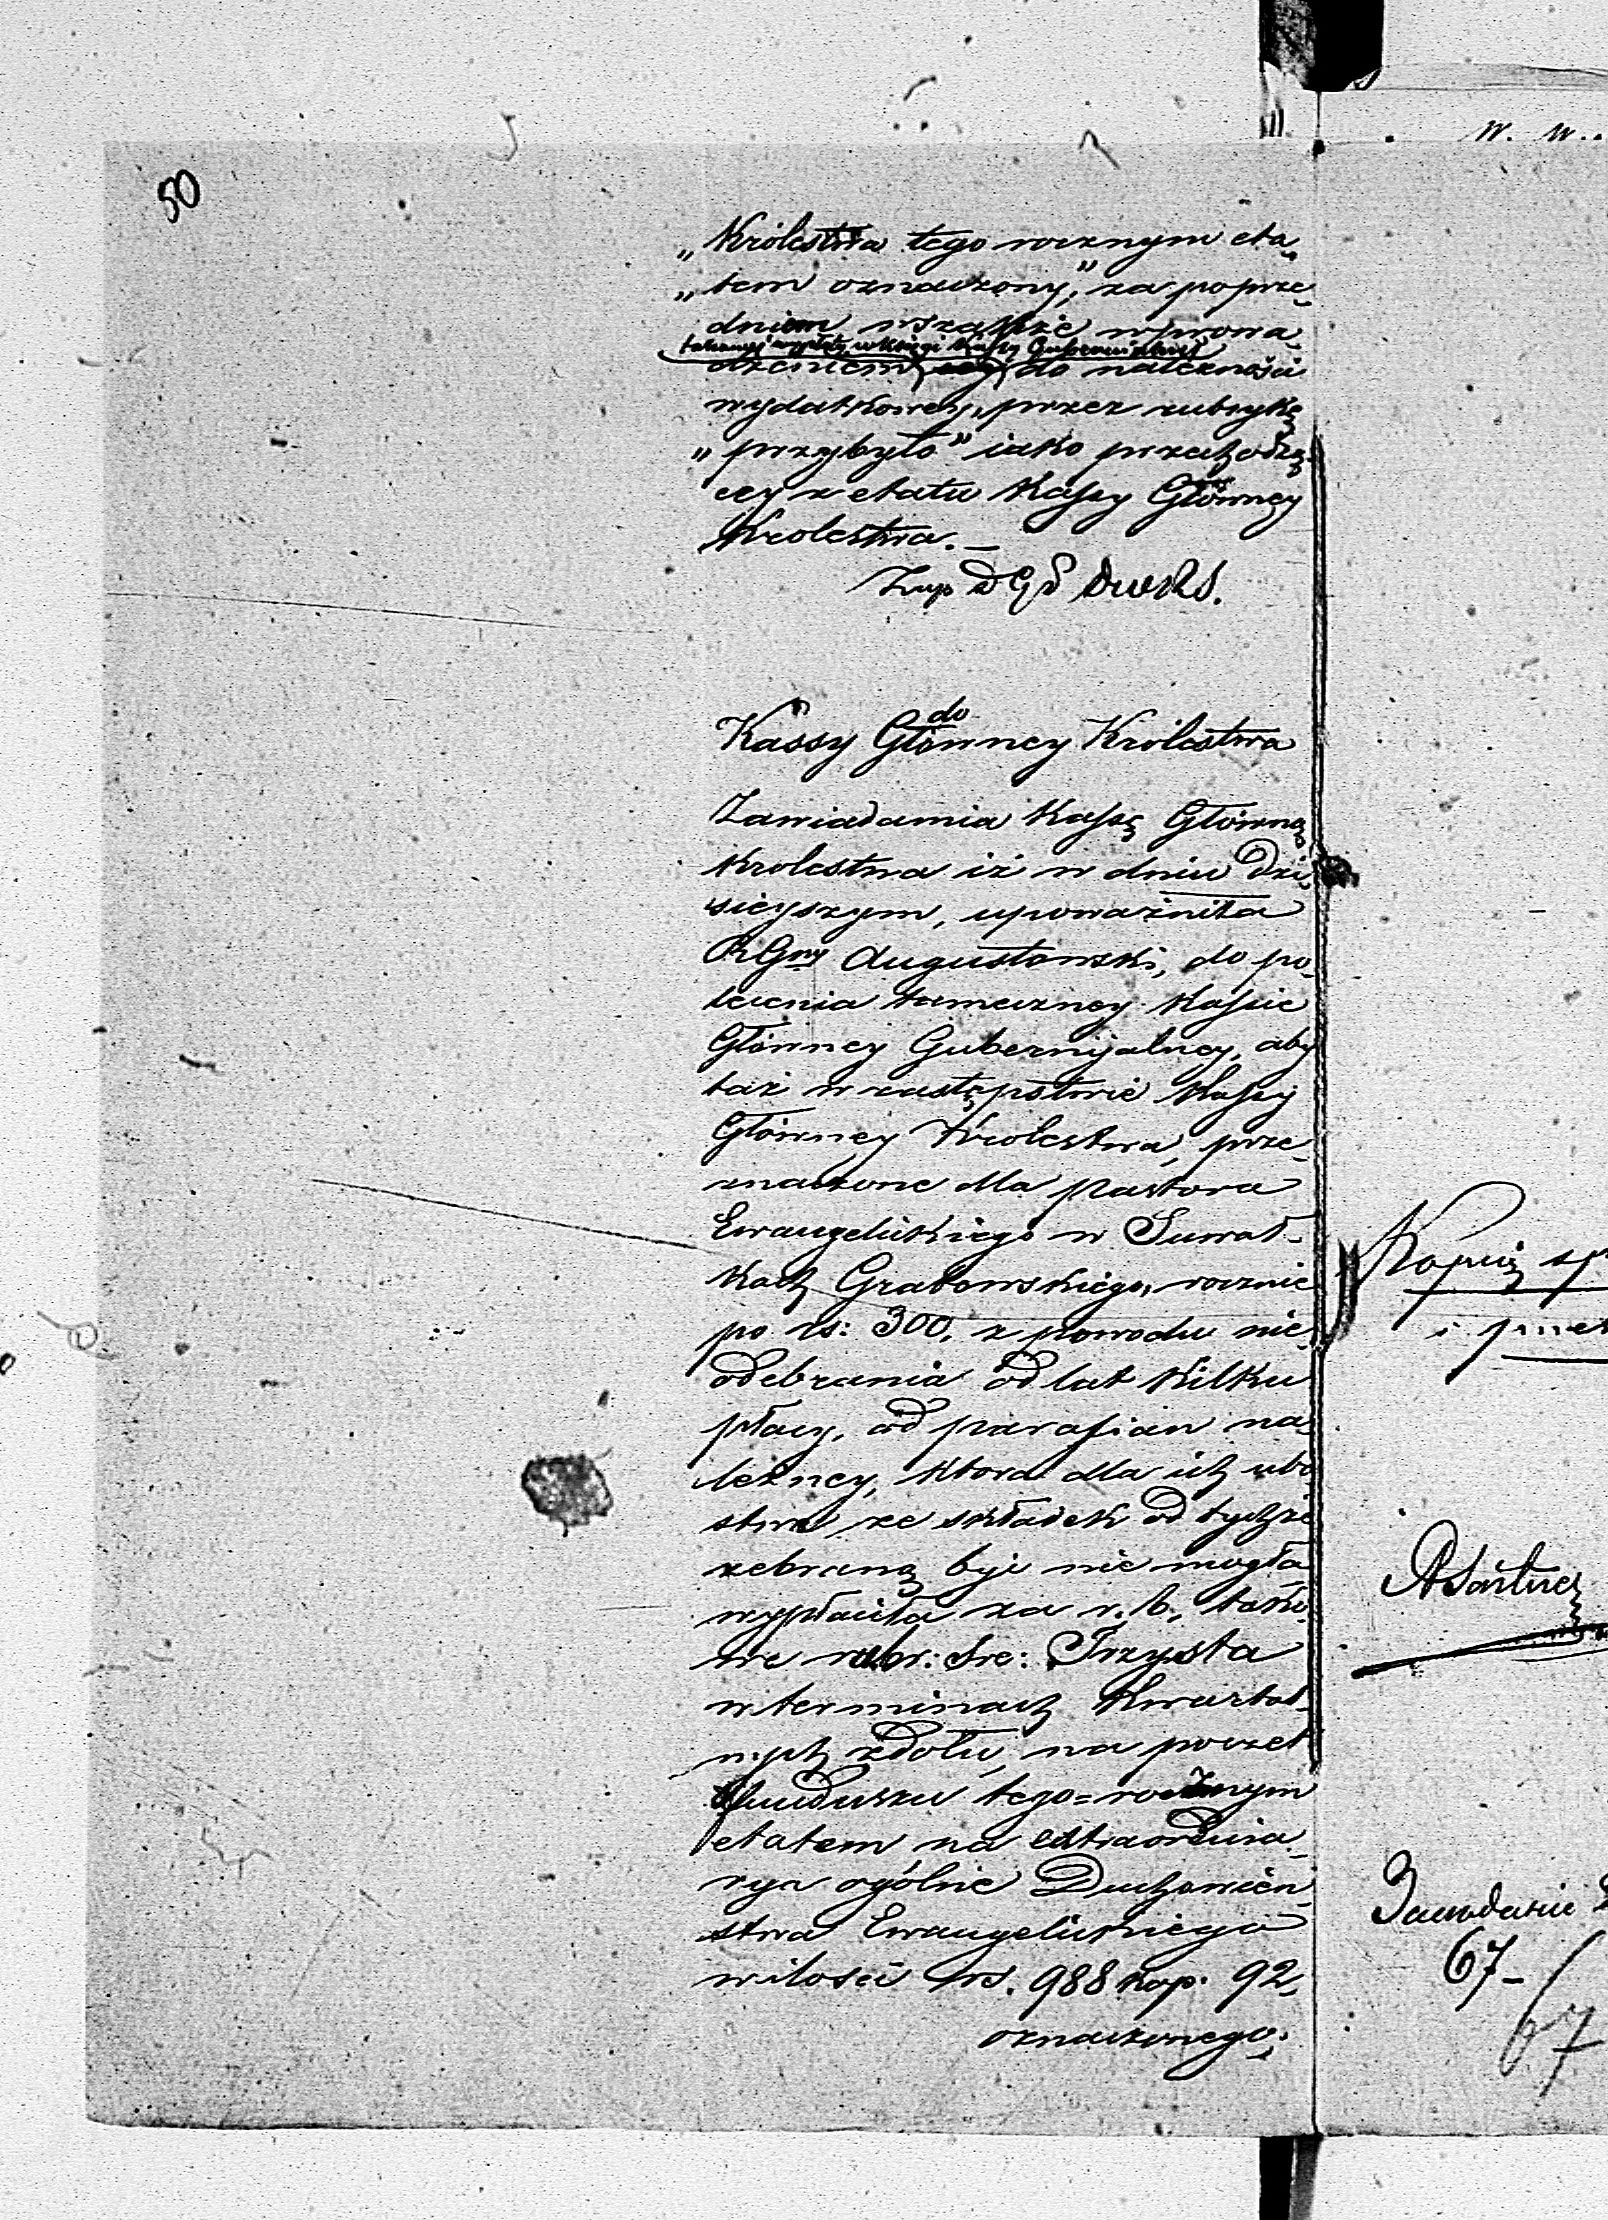 50
„Królestwa tego rocznym eta„
„tem oznaczony," za poprze„
dniem wszakże wprowa„
takowej wypłaty w księgi Kassy Gubernialnej
dzeniem do należności
wydatkowey, przez rubrykę
„przybyło" iako przechodzą„
cey z etatu Kassy Główney
Krolestwa. —
do
Kassy Główney Królestwa
Zawiadamia Kassę Główną
Krolestwa iż w dniu dzi„
sieyszym, upoważniła
RGny Augustowski, do po„
lecenia tameczney Kassie
Główney Gubernijalney, aby
taż w zastępstwie Kassy
Główney Krolestwa, prze„
znaczone dla Pastora
Ewangelickiego w Suwał„
kach Grabowskiego, rocznie
po rs: 300, z powodu nie„
odebrania od lat kilku
płacy, od parafian na„
leżney, ktora dla ich ubo
stwa ze składek od tychże
zebraną być nie mogła
wypłaciła za r. b. tako
we rubr: sre: Trzysta
w terminach Kwartal„
nych zdołu, na poczet
funduszu tego=rocznym
etatem na extraordina„
rya ogólne Duchowień
stwa Ewangelickiego
w ilości rs. 988 kop. 92,
oznaczonego.
Kopią
67-
67